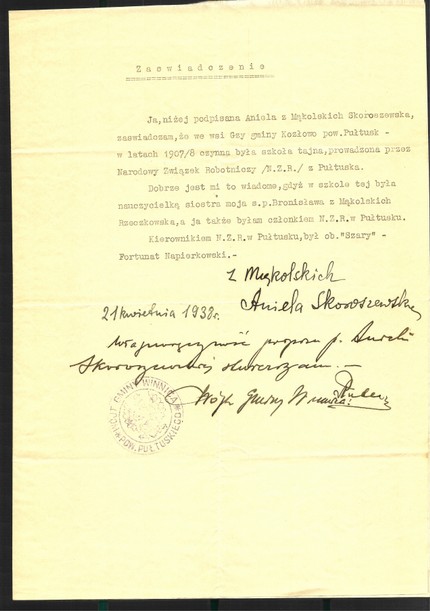 Zaswiadczenie
Ja,niżej podpisana Aniela z Mąkolskich Skoroszewska,
zaswiadczam,że we wsi Gzy gminy Kozłowo pow.Pułtusk -
w latach 1907/8 czynna była szkoła tajna,prowadzona przez
Narodowy Związek Robotniczy /N.Z.R./ z Pułtuska.
Dobrze jest mi to wiadome,gdyż w szkole tej była
nauczycielką siostra moja s.p.Bronisława z Mąkolskich
Rzeczkowska,a ja także byłam członkiem N.Z.R.w Pułtusku.
Kierownikiem N.Z.R.w Pułtusku,był ob."Szary" -
Fortunat Napierkowski.-
z Mąkolskich
Aniela Skoroszewska
21 kwietnia 1938r.
Własnoręczność podpisu p. Anieli
Skoroszewskiej stwierdzam. -
Wójt Gminy Winnica:
WÓJT GMINY WINNICA
POW. PUŁTUSKIEGO